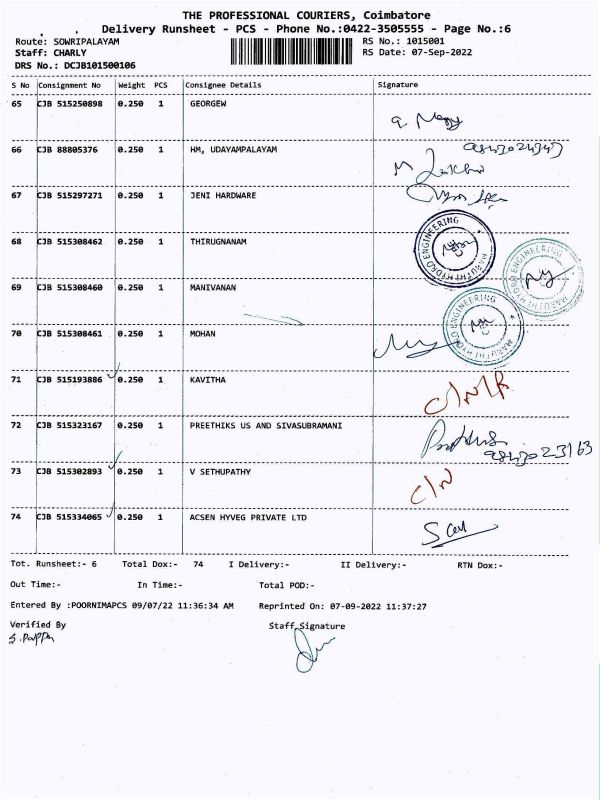 THE PROFESSIONAL COURIERS, Coimbatore
Delivery Runsheet - PCS - Phone No.:0422-3505555 - Page No.:6
Route: SOWRIPALAYAM RS No.: 1015001
Staff: CHARLY RS Date: 07-Sep-2022
DRS No.: DCJB101500106
S No Consignment No Weight PCS Consignee Details Signature
65 CJB 515250898 0.250 1 GEORGEW
66 CJB 88805376 0.250 1 HM, UDAYAMPALAYAM
67 CJB 515297271 0.250 1 JENI HARDWARE
68 CJB 515308462 0.250 1 THIRUGNANAM
MARUTHI HYDRO ENGINEERING
69 CJB 515308460 0.250 1 MANIVANAN
MARUTHI HYDRO ENGINEERING
70 CJB 515308461 0.250 1 MOHAN
MARUTHI HYDRO ENGINEERING
71 CJB 515193886 0.250 1 KAVITHA
72 CJB 515323167 0.250 1 PREETHIKS US AND SIVASUBRAMANI
73 CJB 515302893 0.250 1 V SETHUPATHY C/N
74 CJB 515334065 0.250 1 ACSEN HYVEG PRIVATE LTD
Tot. Runsheet:- 6 Total Dox:- 74 I Delivery:- II Delivery:- RTN Dox:-
Out Time:- In Time:- Total POD:-
Entered By :POORNIMAPCS 09/07/22 11:36:34 AM Reprinted On: 07-09-2022 11:37:27
Verified By Staff Signature